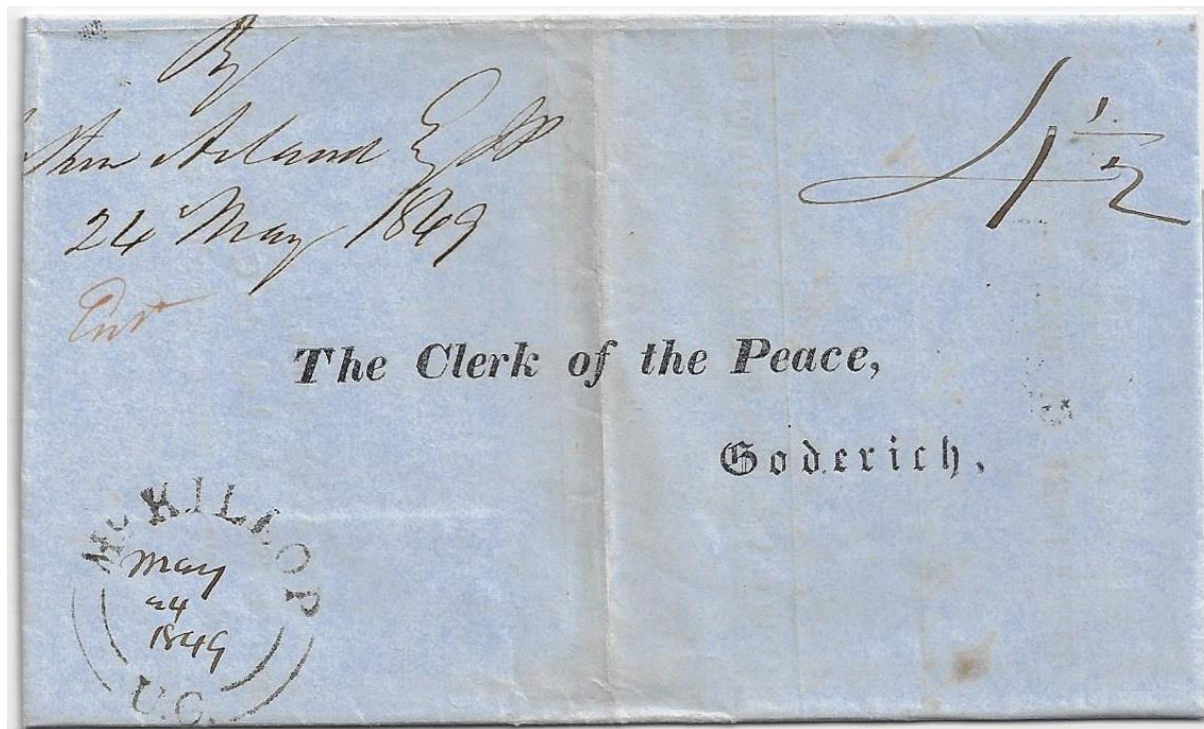 By
Acland Esq JP
24 May 1849
4 1/2
Ent
The Clerk of the Peace,
Goderich,
McKILLOP
May
24
1849
U.C.